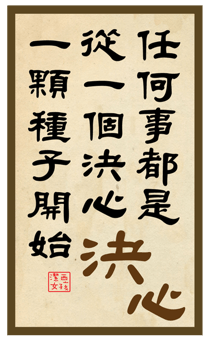 任何事都是
從一個決心
一顆種子開始
決心